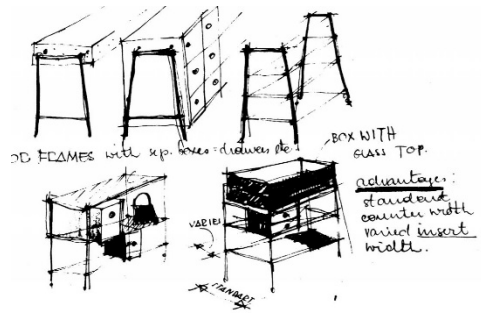 FRAMES with sep. boxes = drawers etc
BOX WITH
GLASS TOP.
advantages:
standard
counter width
varied insert
width.
VARIES
STANDART